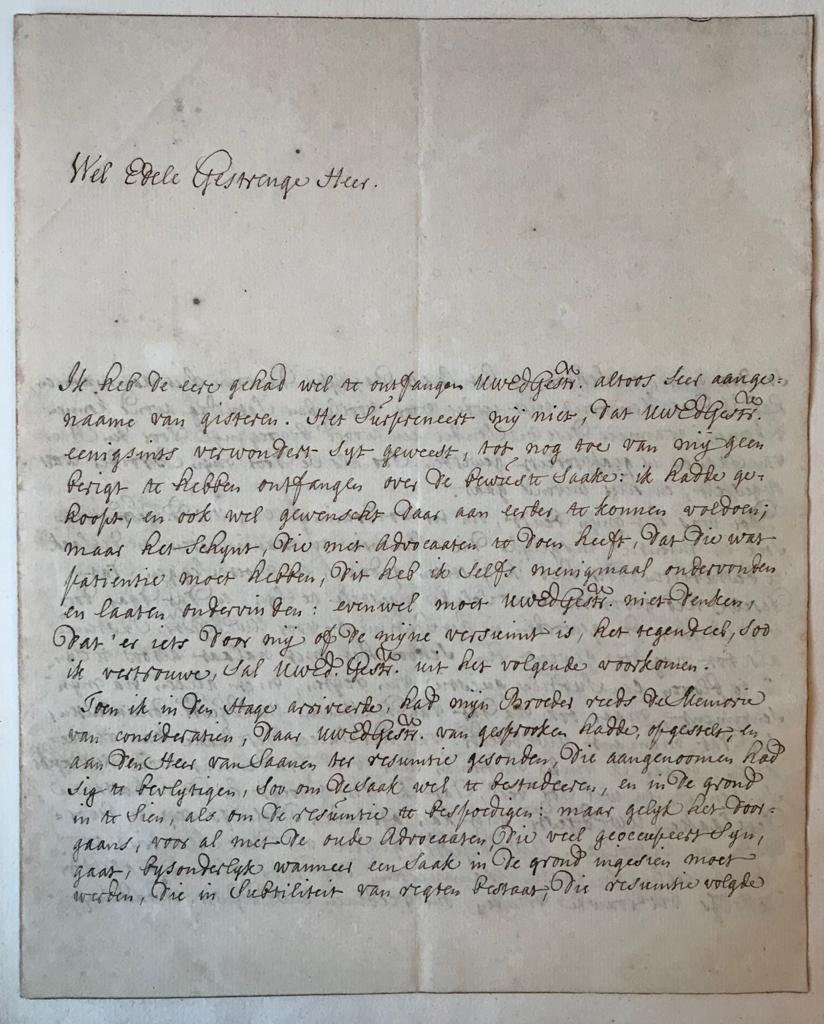 Wel Edele Gestrenge Heer.
Ik heb de eere gehad wel te ontfangen UWEdGestr. altoos seer aange=
naame van gisteren. Het surpreneert mij niet, dat UWEdGestr.
eenigsints verwondert syt geweest, tot nog toe van mij geen
berigt te hebben ontfangen over de bewuste saake: ik hadde ge-
hoopt, en ook wel gewenscht daar aan eerder te konnen voldoen;
maar het schynt, die met Advocaaten te doen heeft, dat die wat
patientie moet hebben, dit heb ik selfs menigmaal ondervonden
en laaten ondervinden: evenwel moet UWEdGestr. niet denken,
dat 'er iets door mij of de mijne versuimt is, het tegendeel, soo
ik vertrouwe, sal UWEd.Gestr. uit het volgende voorkomen.
Toen ik in den Hage arriveerde, had mijn Broeder reeds de Memorie
van consideratien, daar UWEdGestr. van gesprooken hadde, opgestelt, en
aan den Heer van Saanen ter resumtie gesonden, die aangenoomen had
sig te bevlytigen, soo om de saak wel te bestudeeren, en in de grond
in te sien, als om de resumtie te bespoedigen: maar gelyk het door=
gaans, voor al met de oude Advocaaten die veel geoccupeert syn,
gaat, bysonderlyk wanneer een saak in de grond ingesien moet
werden, die in subtiliteit van regten bestaat, die resumtie volgde